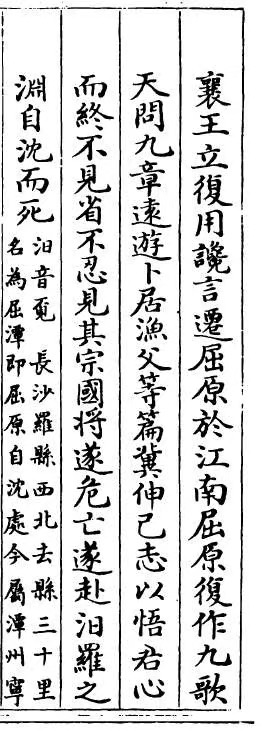 襄王立復用讒言遷屈原於江南屈原復作九歌
天問九章遠遊卜居漁父等篇冀伸己志以悟君心
而終不見省不忍見其宗國將遂危亡遂赴汨羅之
淵自沈而死
汨音覓　長沙羅縣西北去縣三十里
名為屈潭即屈原自沈處今屬潭州寧